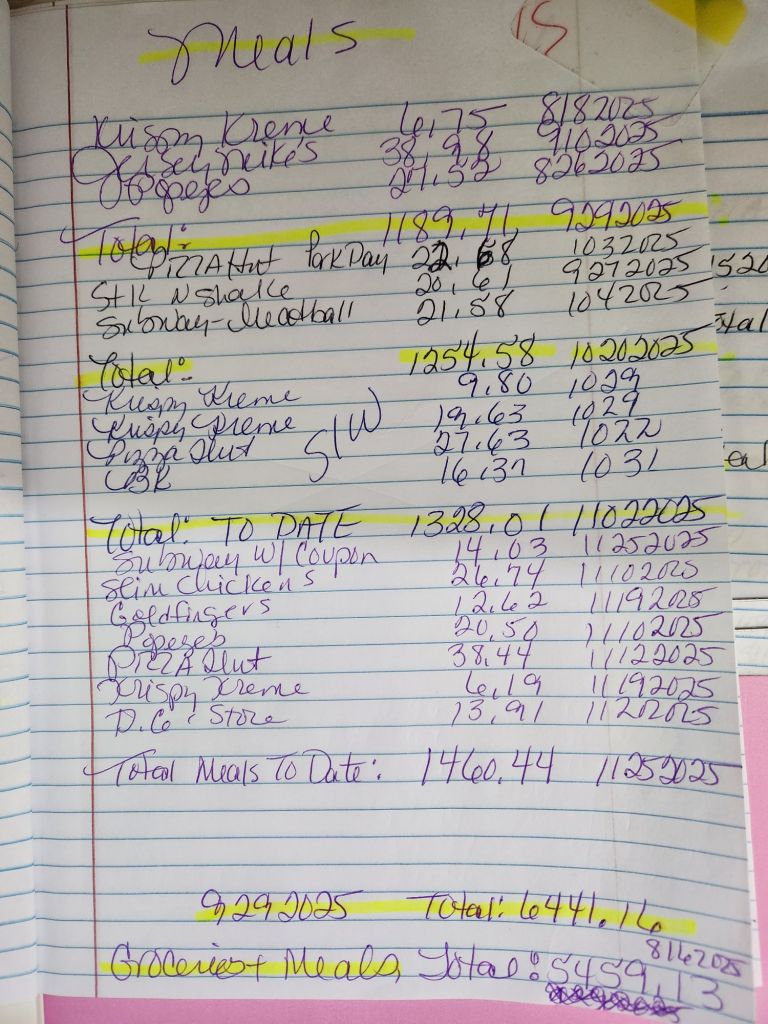 15
Meals
Krispy Kreme 6.75 8182025
Jersey Mike's 38.98 9102025
Popeyes 27.52 8262025
Total: 1189.71 9292025
Pizza Hut Park Day 22.68 1032025
Stk N Shake 20.61 9272025
Subway-Meatball 21.58 1042025
Total: 1254.58 10202025
Krispy Kreme 9.80 1029
Krispy Kreme 19.63 1029
Pizza Hut 27.63 1022
CBR 16.37 1031
Total: TO DATE 1328.01 11022025
Subway w/ Coupon 14.03 11252025
Slim Chickens 26.74 11102025
Goldfingers 12.62 11192025
Popeyes 20.50 11102025
Pizza Hut 38.44 11122025
Krispy Kreme 6.19 11192025
D.C. Store 13.91 11202025
Total Meals To Date: 1460.44 11252025
9292025 Total: 6441.16
8162025
Groceries + Meals Total: 5459.13